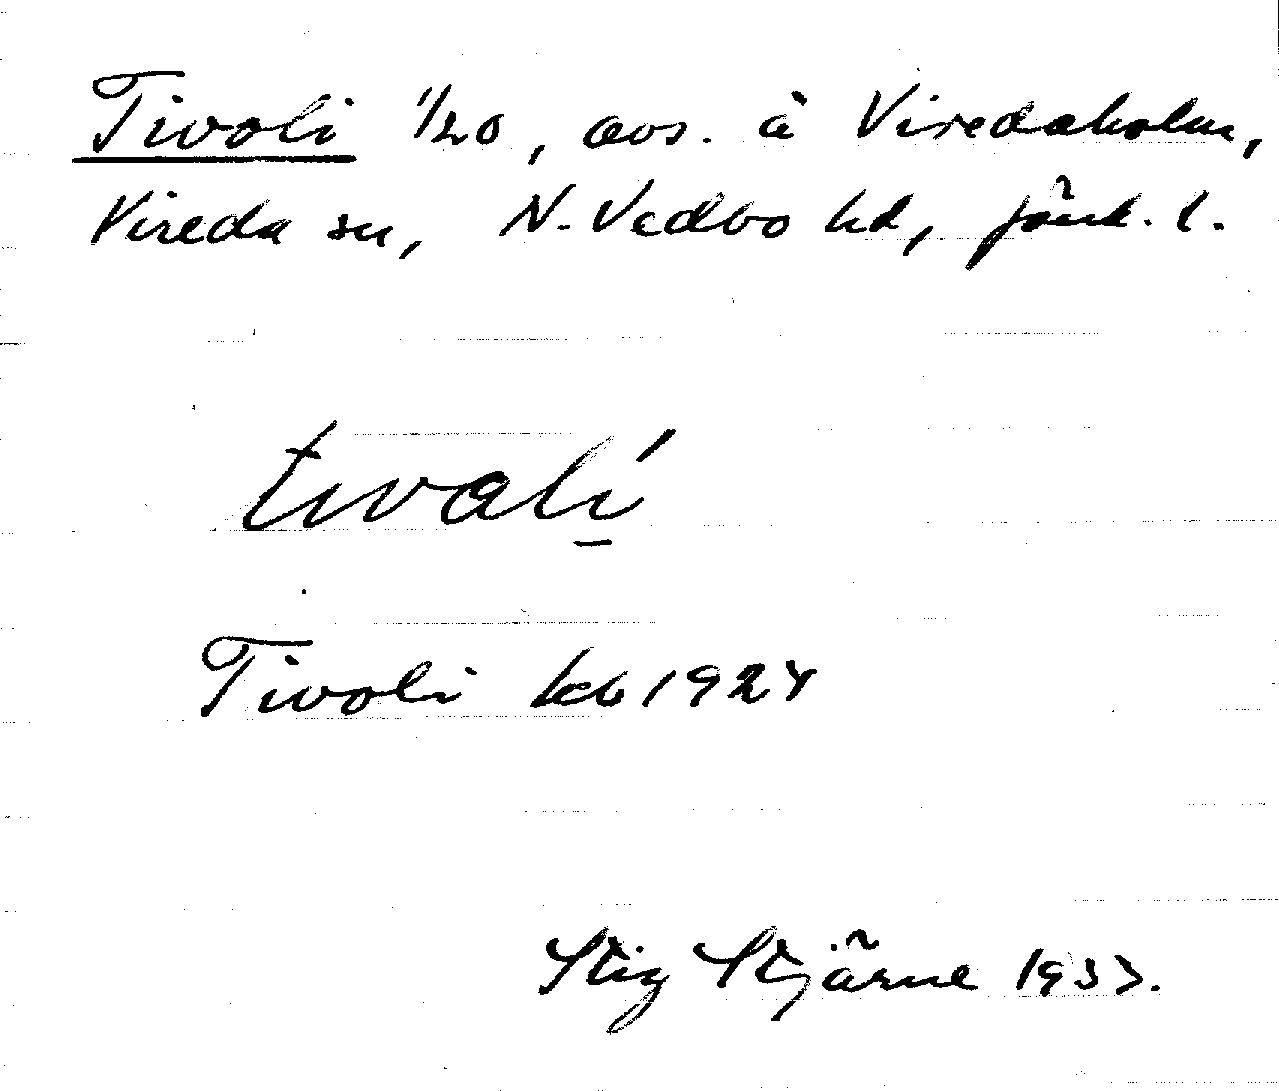 Tivoli 1/20, avs. å Viredaholm,
Vireda sn, N. Vedbo hd, Jönk. l.
tivalí
Tivoli kb 1924
Stig Stjärne 1933.